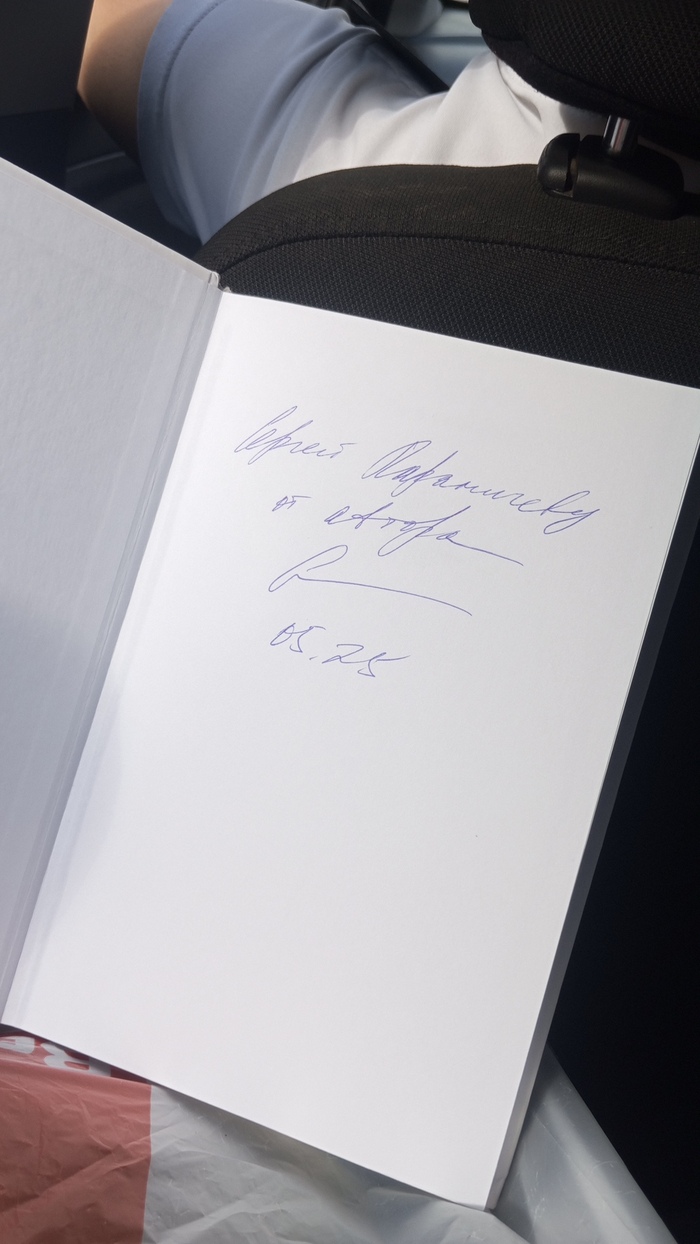 Сергей Парамичеву
от автора
05.25